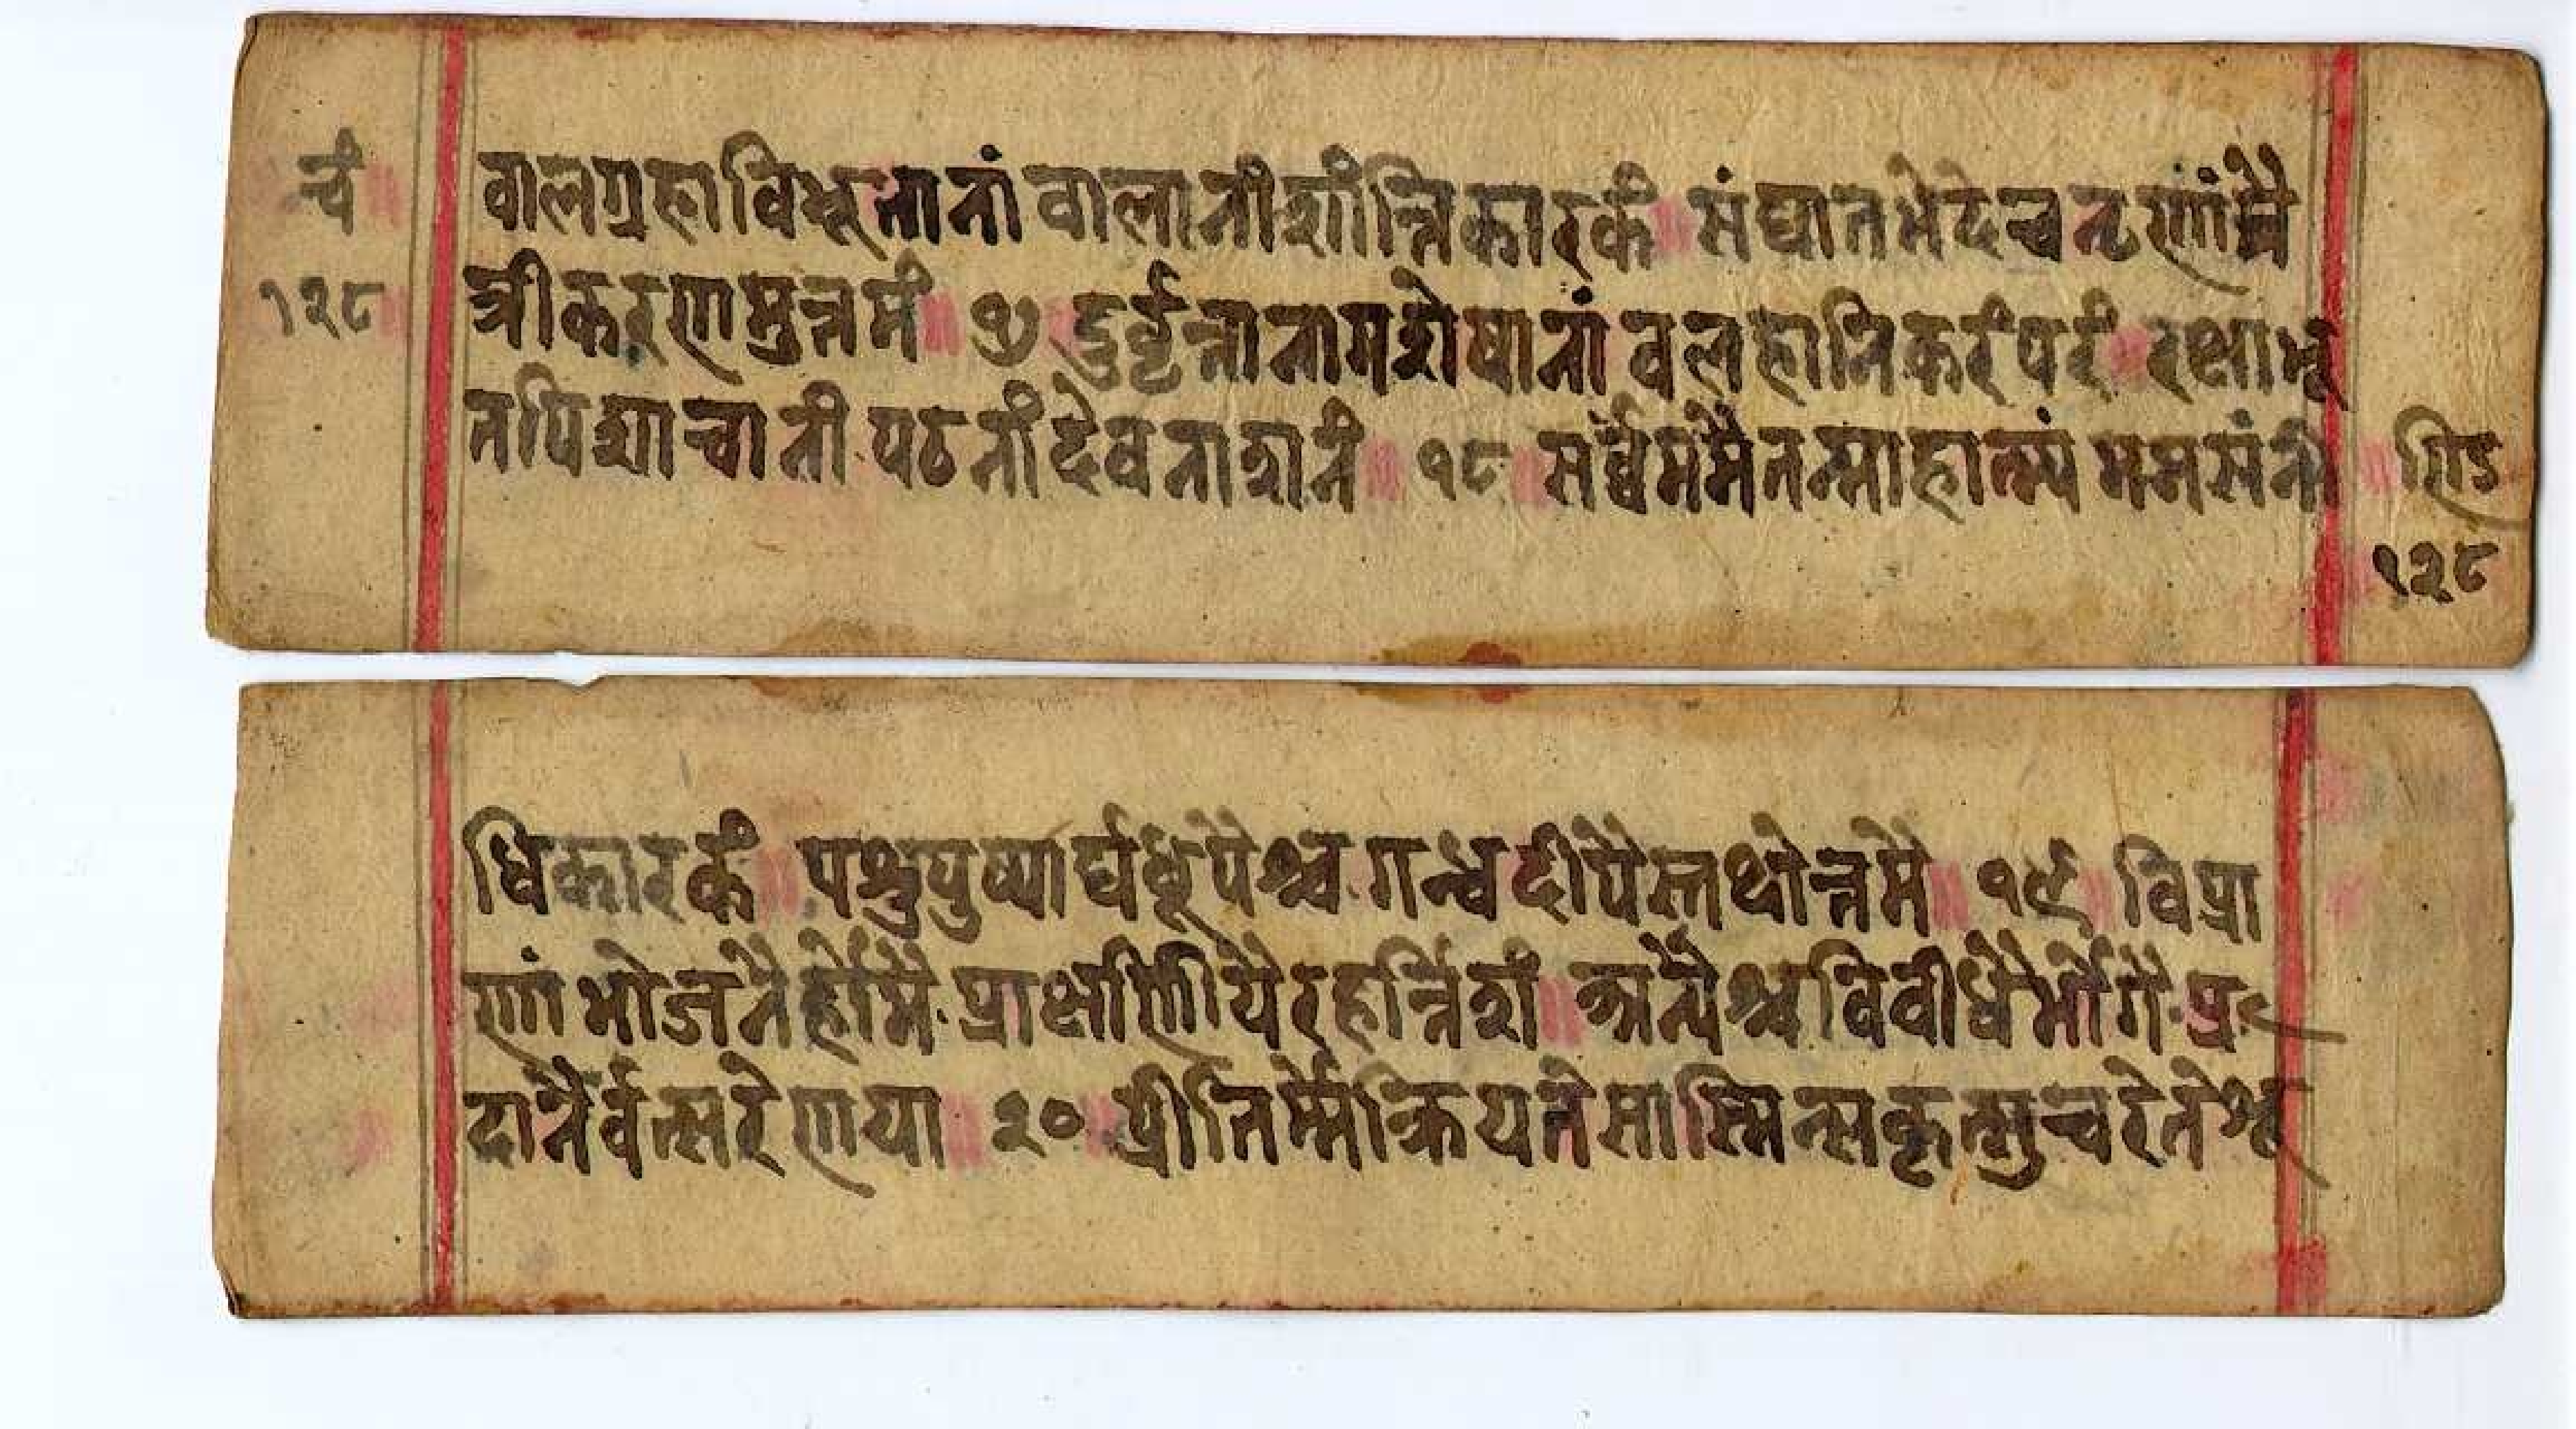 चं
१२८
वालग्रहाविभूतानां वालानीशांन्तिकारकं ॥ संघातभेदेचनृणांमै
त्रीकरणमुत्तमं ॥ १७ ॥ दुर्वृत्तानामशेषानां वलहानिकरंपरं ॥ रक्षाभू
तपिशाचानी पठनांदेवनाशनं ॥ १८ ॥ सर्व्वंममैतन्माहात्म्यं ममसंनी
॥ णिऽ
१२८
धिकारकं ॥ पशुपुष्पार्घधूपैश्च गन्धदीपैस्तथोत्तमै ॥ १९ ॥ विप्रा
णांभोजनैर्होमै प्राक्षणीयैरहर्न्निशं ॥ अन्यैश्चविवीधैर्भोगै प्र
दानैर्वत्सरेणया ॥ २० ॥ प्रीतिर्म्मेक्रियतेसास्मिन्सकृत्सुचरेतेश्रू